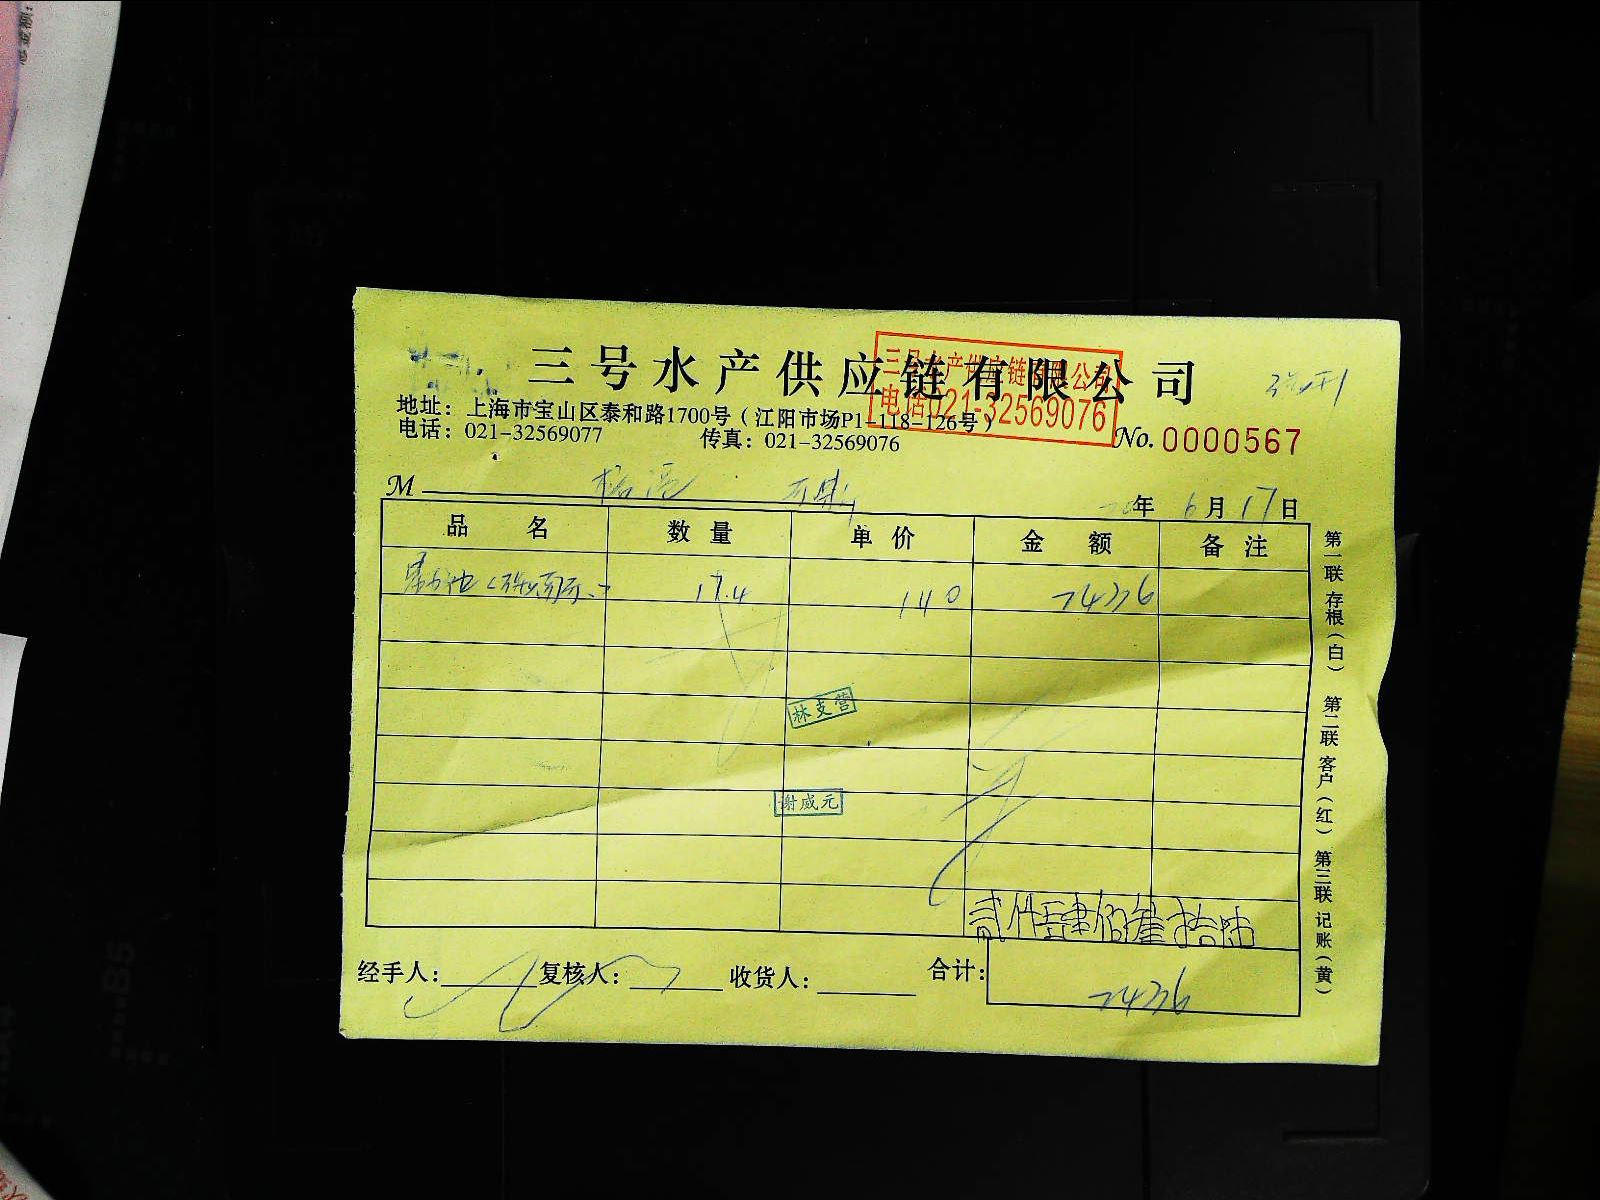 三号水产供应链有限公司
三号水产供应链有限公司
电话021-32569076
地址：上海市宝山区泰和路1700号（江阳市场P1-118-126号）
电话：021-32569077 传真：021-32569076
No. 0000567
M
年 6月17日
品名 数量 单价 金额 备注
17.4 140 2436
林支营
谢威元
贰仟肆佰叁拾陆
经手人： 复核人： 收货人： 合计： 2436
第一联 存根（白） 第二联 客户（红） 第三联 记账（黄）
B5